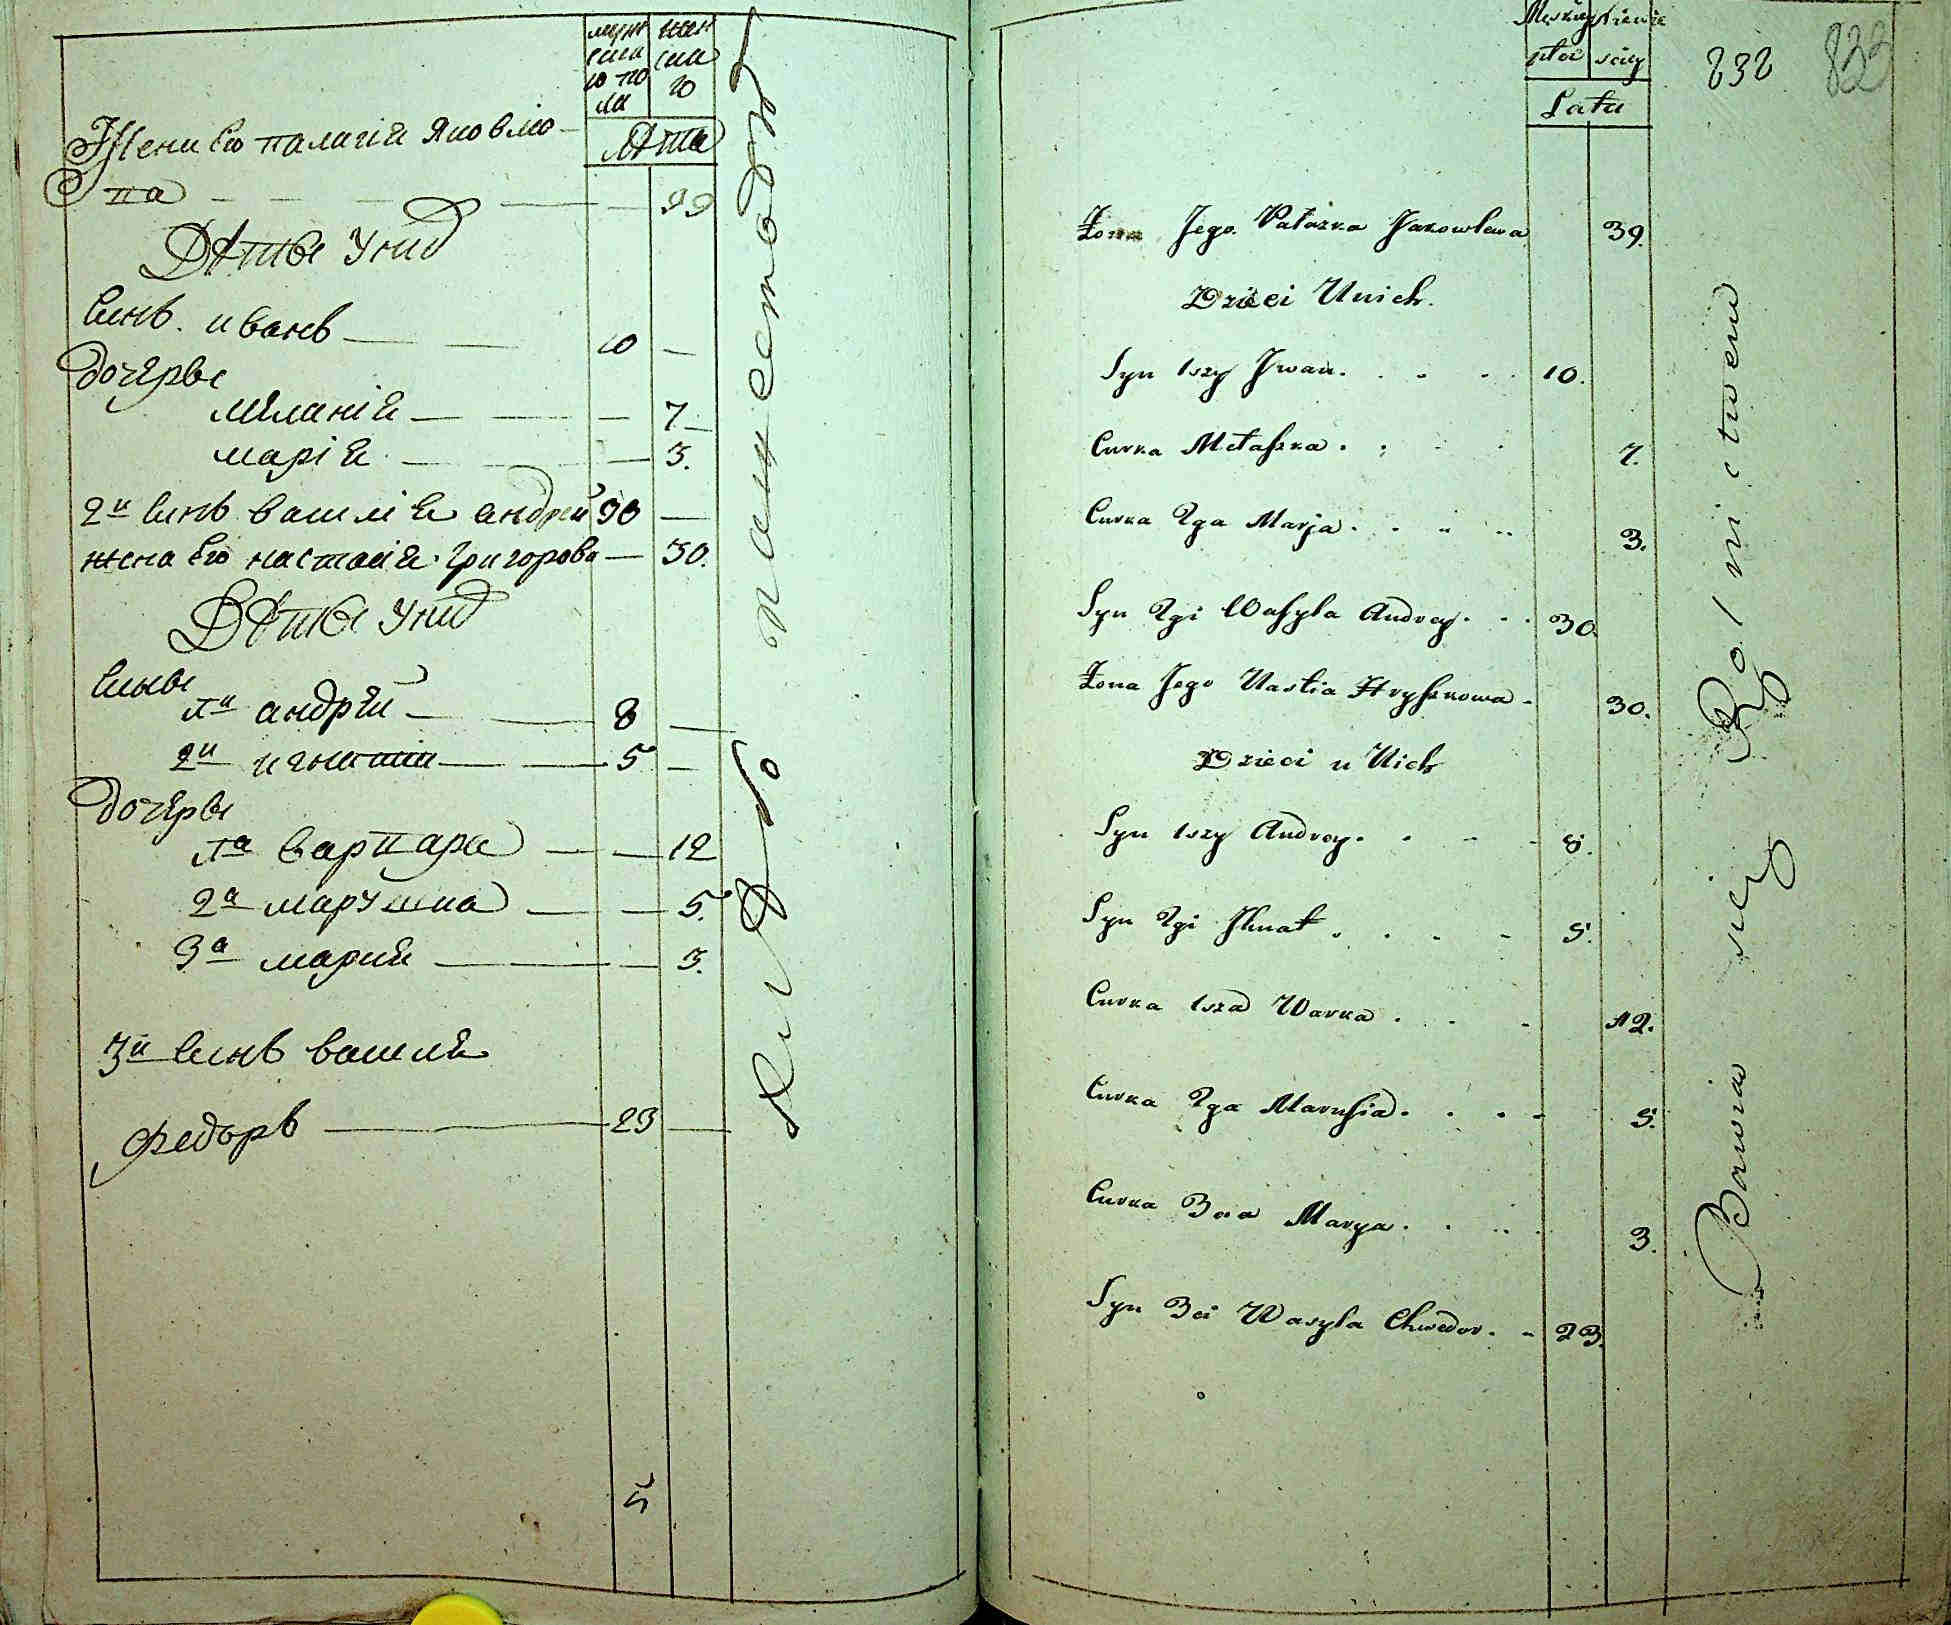 мужескаго пола
женскаго
лѣта
Жена Его палагія Яковлю
па — 39
Дѣти У нид
Синъ иванъ — 10 —
дочѣры
мѣланія — 7
марія — 3.
2й Синъ василія андрей 30 —
жена Его настасія Григорова — 30.
Дѣти У нид
Сыны
1й андрей — 8 —
2й игнатій — 5 —
дочѣры
1а варвара — 12
2а марушка — 5.
3а марія — 3.
3й Синъ василія
Федоръ — 23 —
5
Męzkiey żienskiey
płci
Lata
232
833
Żona Jego Pałazka Jakowlewa 39.
Dzieci Unich.
Syn 1szy Jwan. 10.
Curka Mełaszka. 7.
Curka 2ga Marja. 3.
Syn 2gi Wasyla Andrey. 30.
Żona Jego Nastia Hryszkowa 30.
Dzieci u Nich
Syn 1szy Andrey. 8.
Syn 2gi Jhnat. 5.
Curka 1sza Warka. 12.
Curka 2ga Marusia. 5.
Curka 3cia Marya. 3.
Syn 3ci Wasyla Chwedor. 23.
Bawią się Rolnictwem